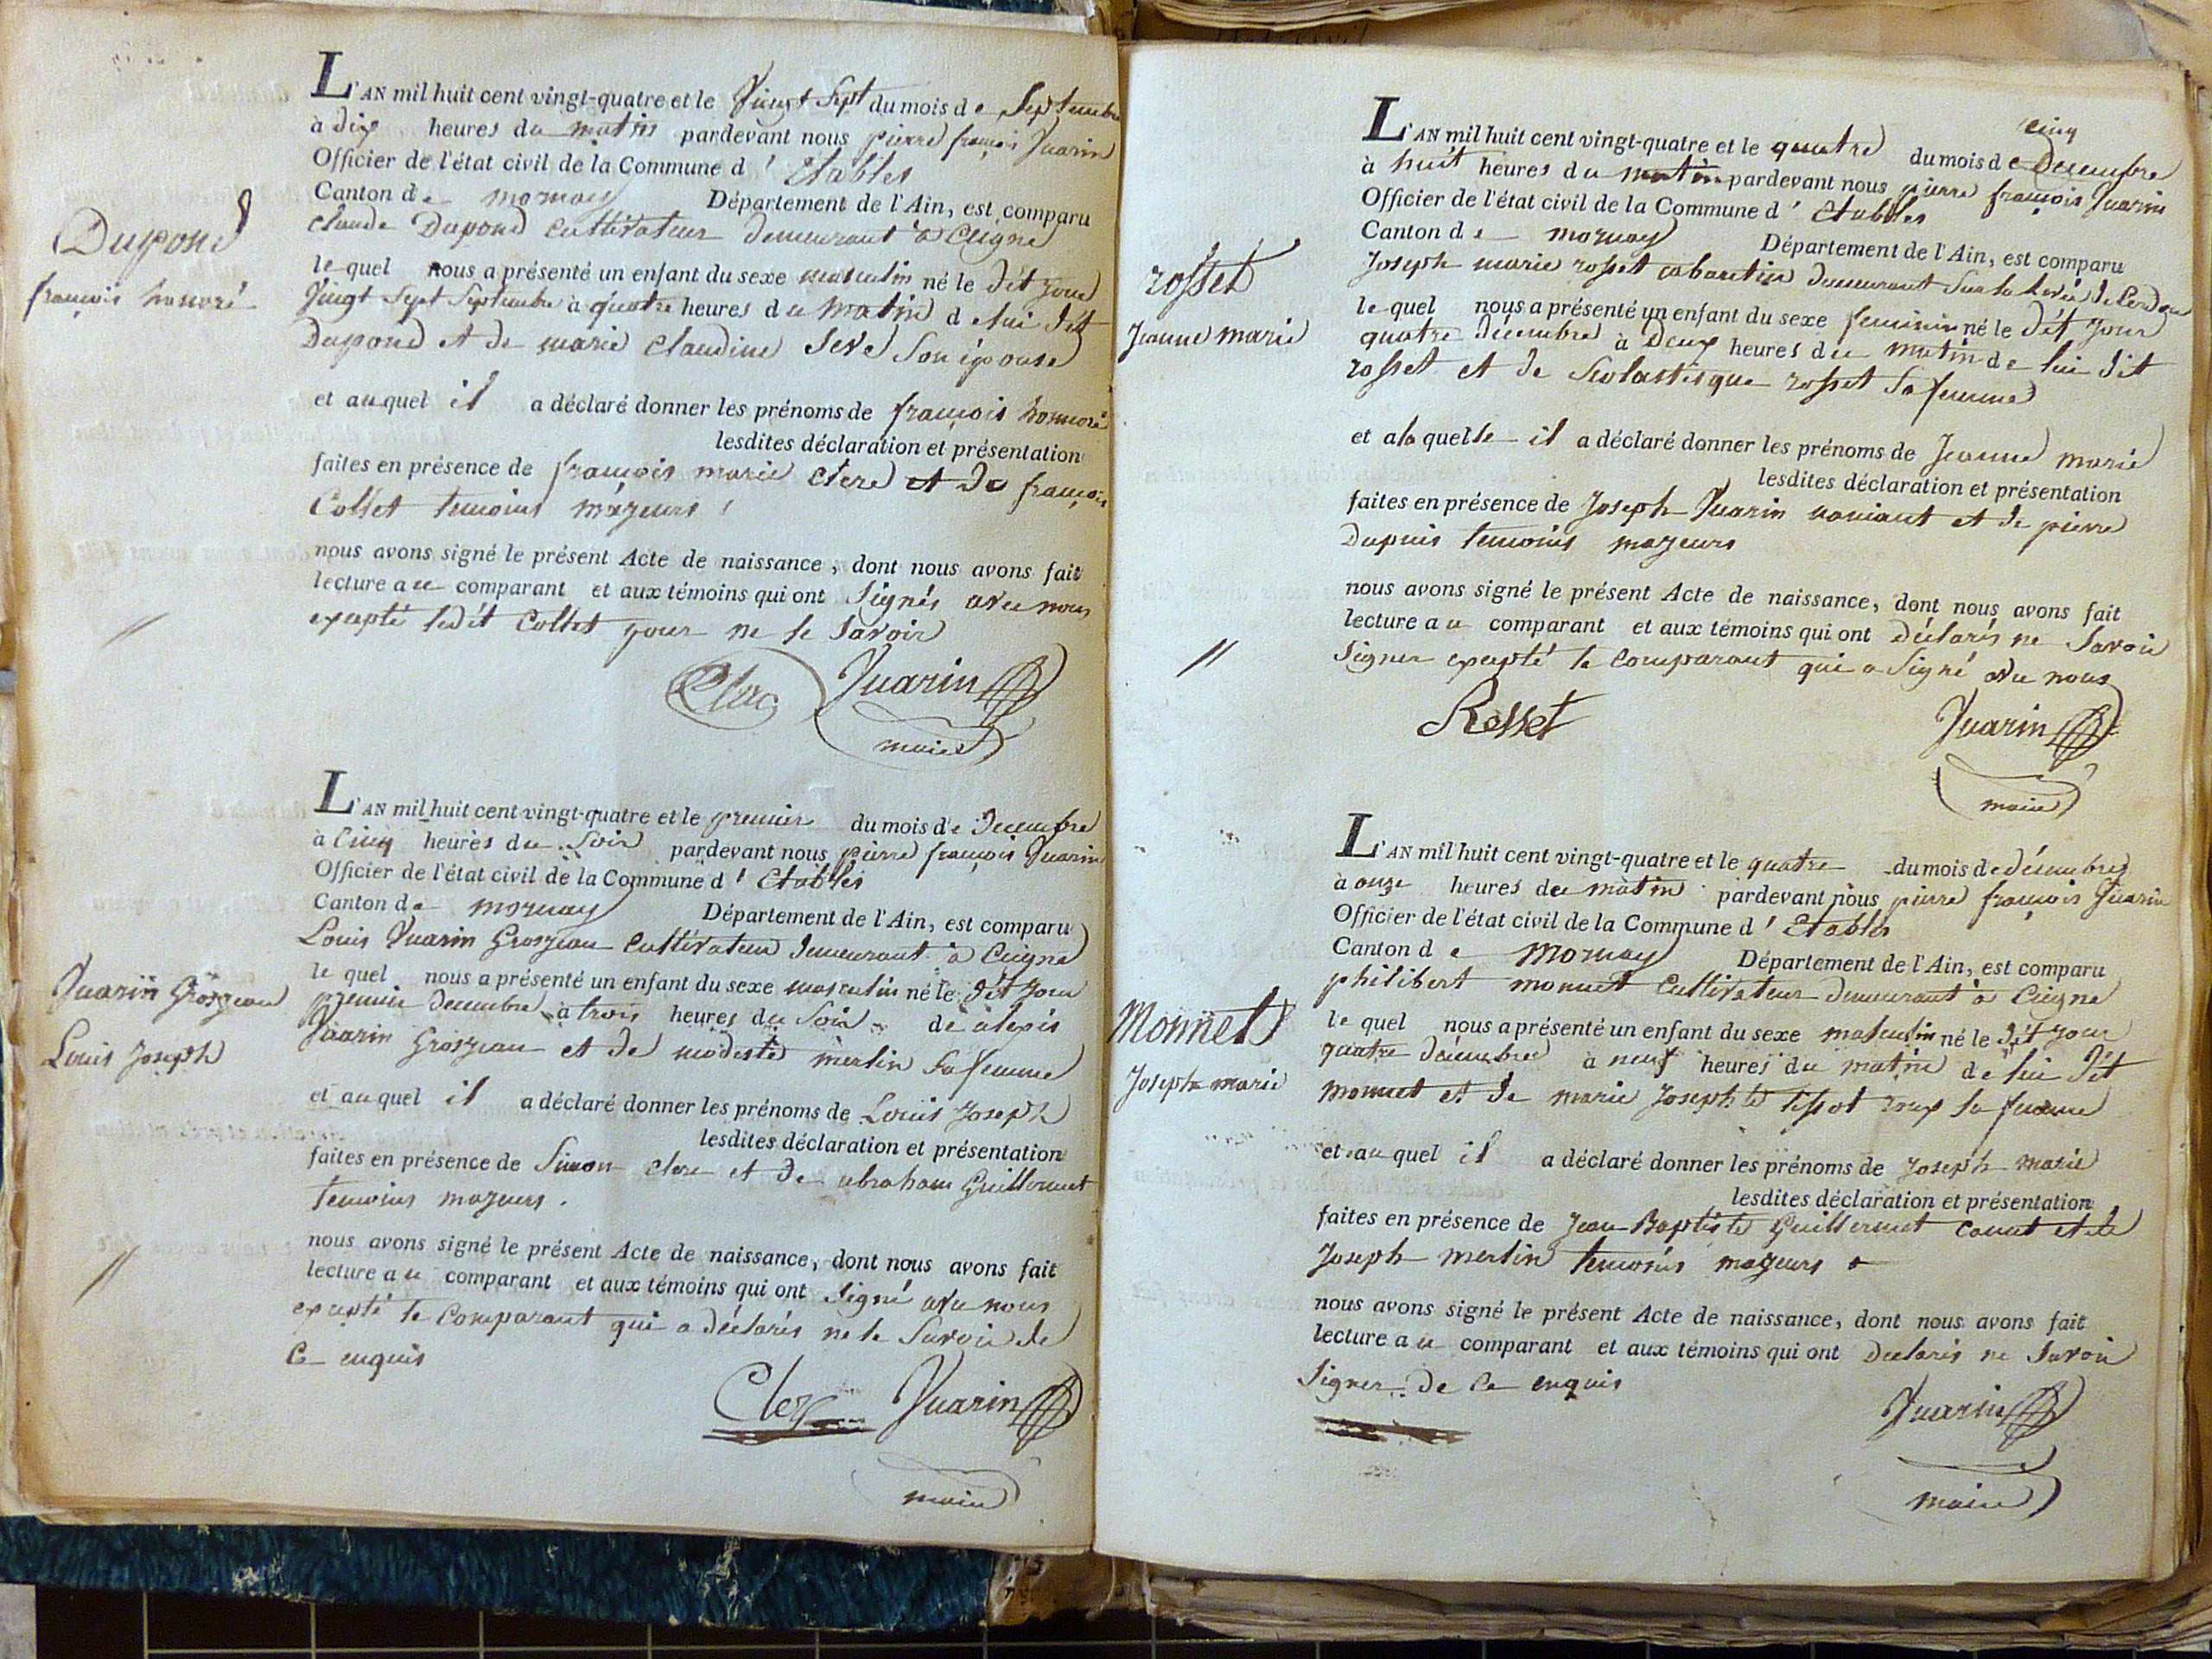 Dupond
françois honoré
L'AN mil huit cent vingt-quatre et le Vingt Sept du mois de Septembre
à dix heures du matin pardevant nous pierre françois Juarin
Officier de l'état civil de la Commune d' Etables
Canton de mornay Département de l'Ain, est comparu
claude Dupond Cultivateur demeurant à Ceigne
lequel nous a présenté un enfant du sexe masculin né le dit jour
Vingt Sept Septembre à quatre heures du matin de lui dit
Dupond et de marie Claudine Seve Son épouse
et auquel il a déclaré donner les prénoms de françois honnoré
lesdites déclaration et présentation
faites en présence de françois marie clere et de françois
Collet temoins majeurs
nous avons signé le présent Acte de naissance, dont nous avons fait
lecture au comparant et aux témoins qui ont Signés avec nous
excepté ledit Collet pour ne le Savoir
Juarin
maire
Juarin Grosjean
Louis Joseph
L'AN mil huit cent vingt-quatre et le premier du mois de Decembre
à Cinq heures du Soir pardevant nous pierre françois Juarin
Officier de l'état civil de la Commune d' Etables
Canton de mornay Département de l'Ain, est comparu
Louis Juarin Grosjean Cultivateur demeurant à Ceigne
lequel nous a présenté un enfant du sexe masculin né le dit jour
premier decembre à trois heures du Soir de alexis
Juarin Grosjean et de modeste merlin Sa femme
et auquel il a déclaré donner les prénoms de Louis Joseph
lesdites déclaration et présentation
faites en présence de Simon clere et de abraham Guillermet
temoins majeurs.
nous avons signé le présent Acte de naissance, dont nous avons fait
lecture au comparant et aux témoins qui ont Signé avec nous
excepté le Comparant qui a déclarés ne le Savoir de
Ce enquis
Clerc Juarin
maire
rosset
Jeanne marie
cinq
L'AN mil huit cent vingt-quatre et le quatre du mois de Decembre
à huit heures du matin pardevant nous pierre françois Juarin
Officier de l'état civil de la Commune d' Etables
Canton de mornay Département de l'Ain, est comparu
Joseph marie rosset cabaretier demeurant Sur la Levée de Cerdon
lequel nous a présenté un enfant du sexe feminin né le dit jour
quatre décembre à Deux heures du matin de lui dit
rosset et de Scolastique rosset Sa femme
et a la quelle il a déclaré donner les prénoms de Jeanne marie
lesdites déclaration et présentation
faites en présence de Joseph Juarin et de pierre
Dupuis temoins majeurs
nous avons signé le présent Acte de naissance, dont nous avons fait
lecture au comparant et aux témoins qui ont déclarés ne Savoir
Signer excepté le Comparant qui a Signé avec nous
Rosset Juarin
maire
Monnet
Joseph marie
L'AN mil huit cent vingt-quatre et le quatre du mois de désembre
à onze heures du matin pardevant nous pierre françois Juarin
Officier de l'état civil de la Commune d' Etables
Canton de Mornay Département de l'Ain, est comparu
philibert monnet Cultivateur demeurant à Ceigne
lequel nous a présenté un enfant du sexe masculin né le dit jour
quatre décembre à neuf heures du matin de lui dit
monnet et de marie Josephte tissot roux Sa femme
et auquel il a déclaré donner les prénoms de Joseph marie
lesdites déclaration et présentation
faites en présence de Jean Baptiste Guillermet et de
Joseph merlin temoins majeurs
nous avons signé le présent Acte de naissance, dont nous avons fait
lecture au comparant et aux témoins qui ont Declarés ne Savoir
Signer de Ce enquis
Juarin
maire